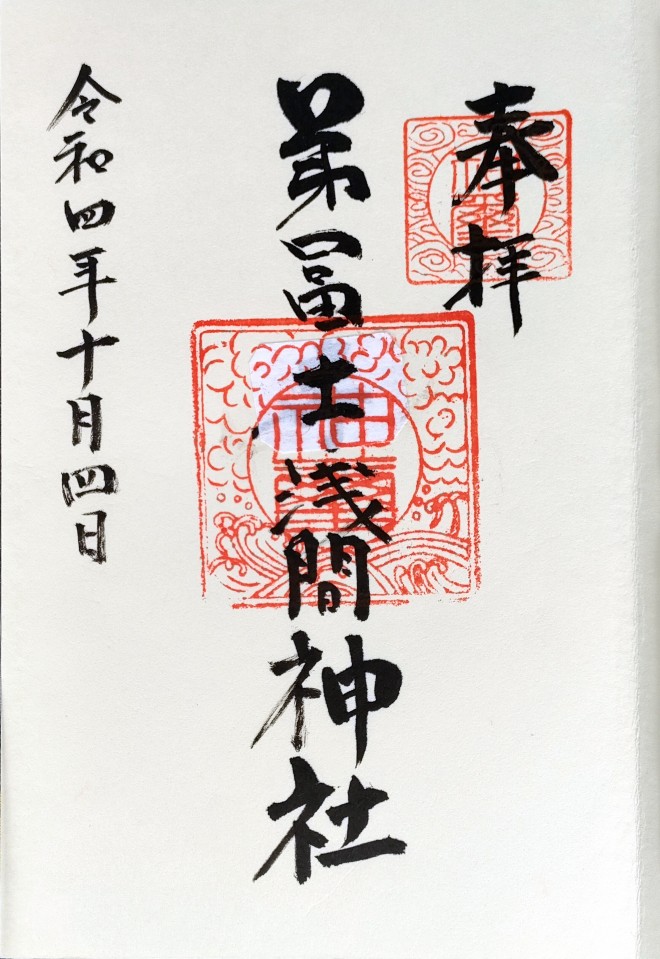 奉拝
弟冨士浅間神社
令和四年十月四日